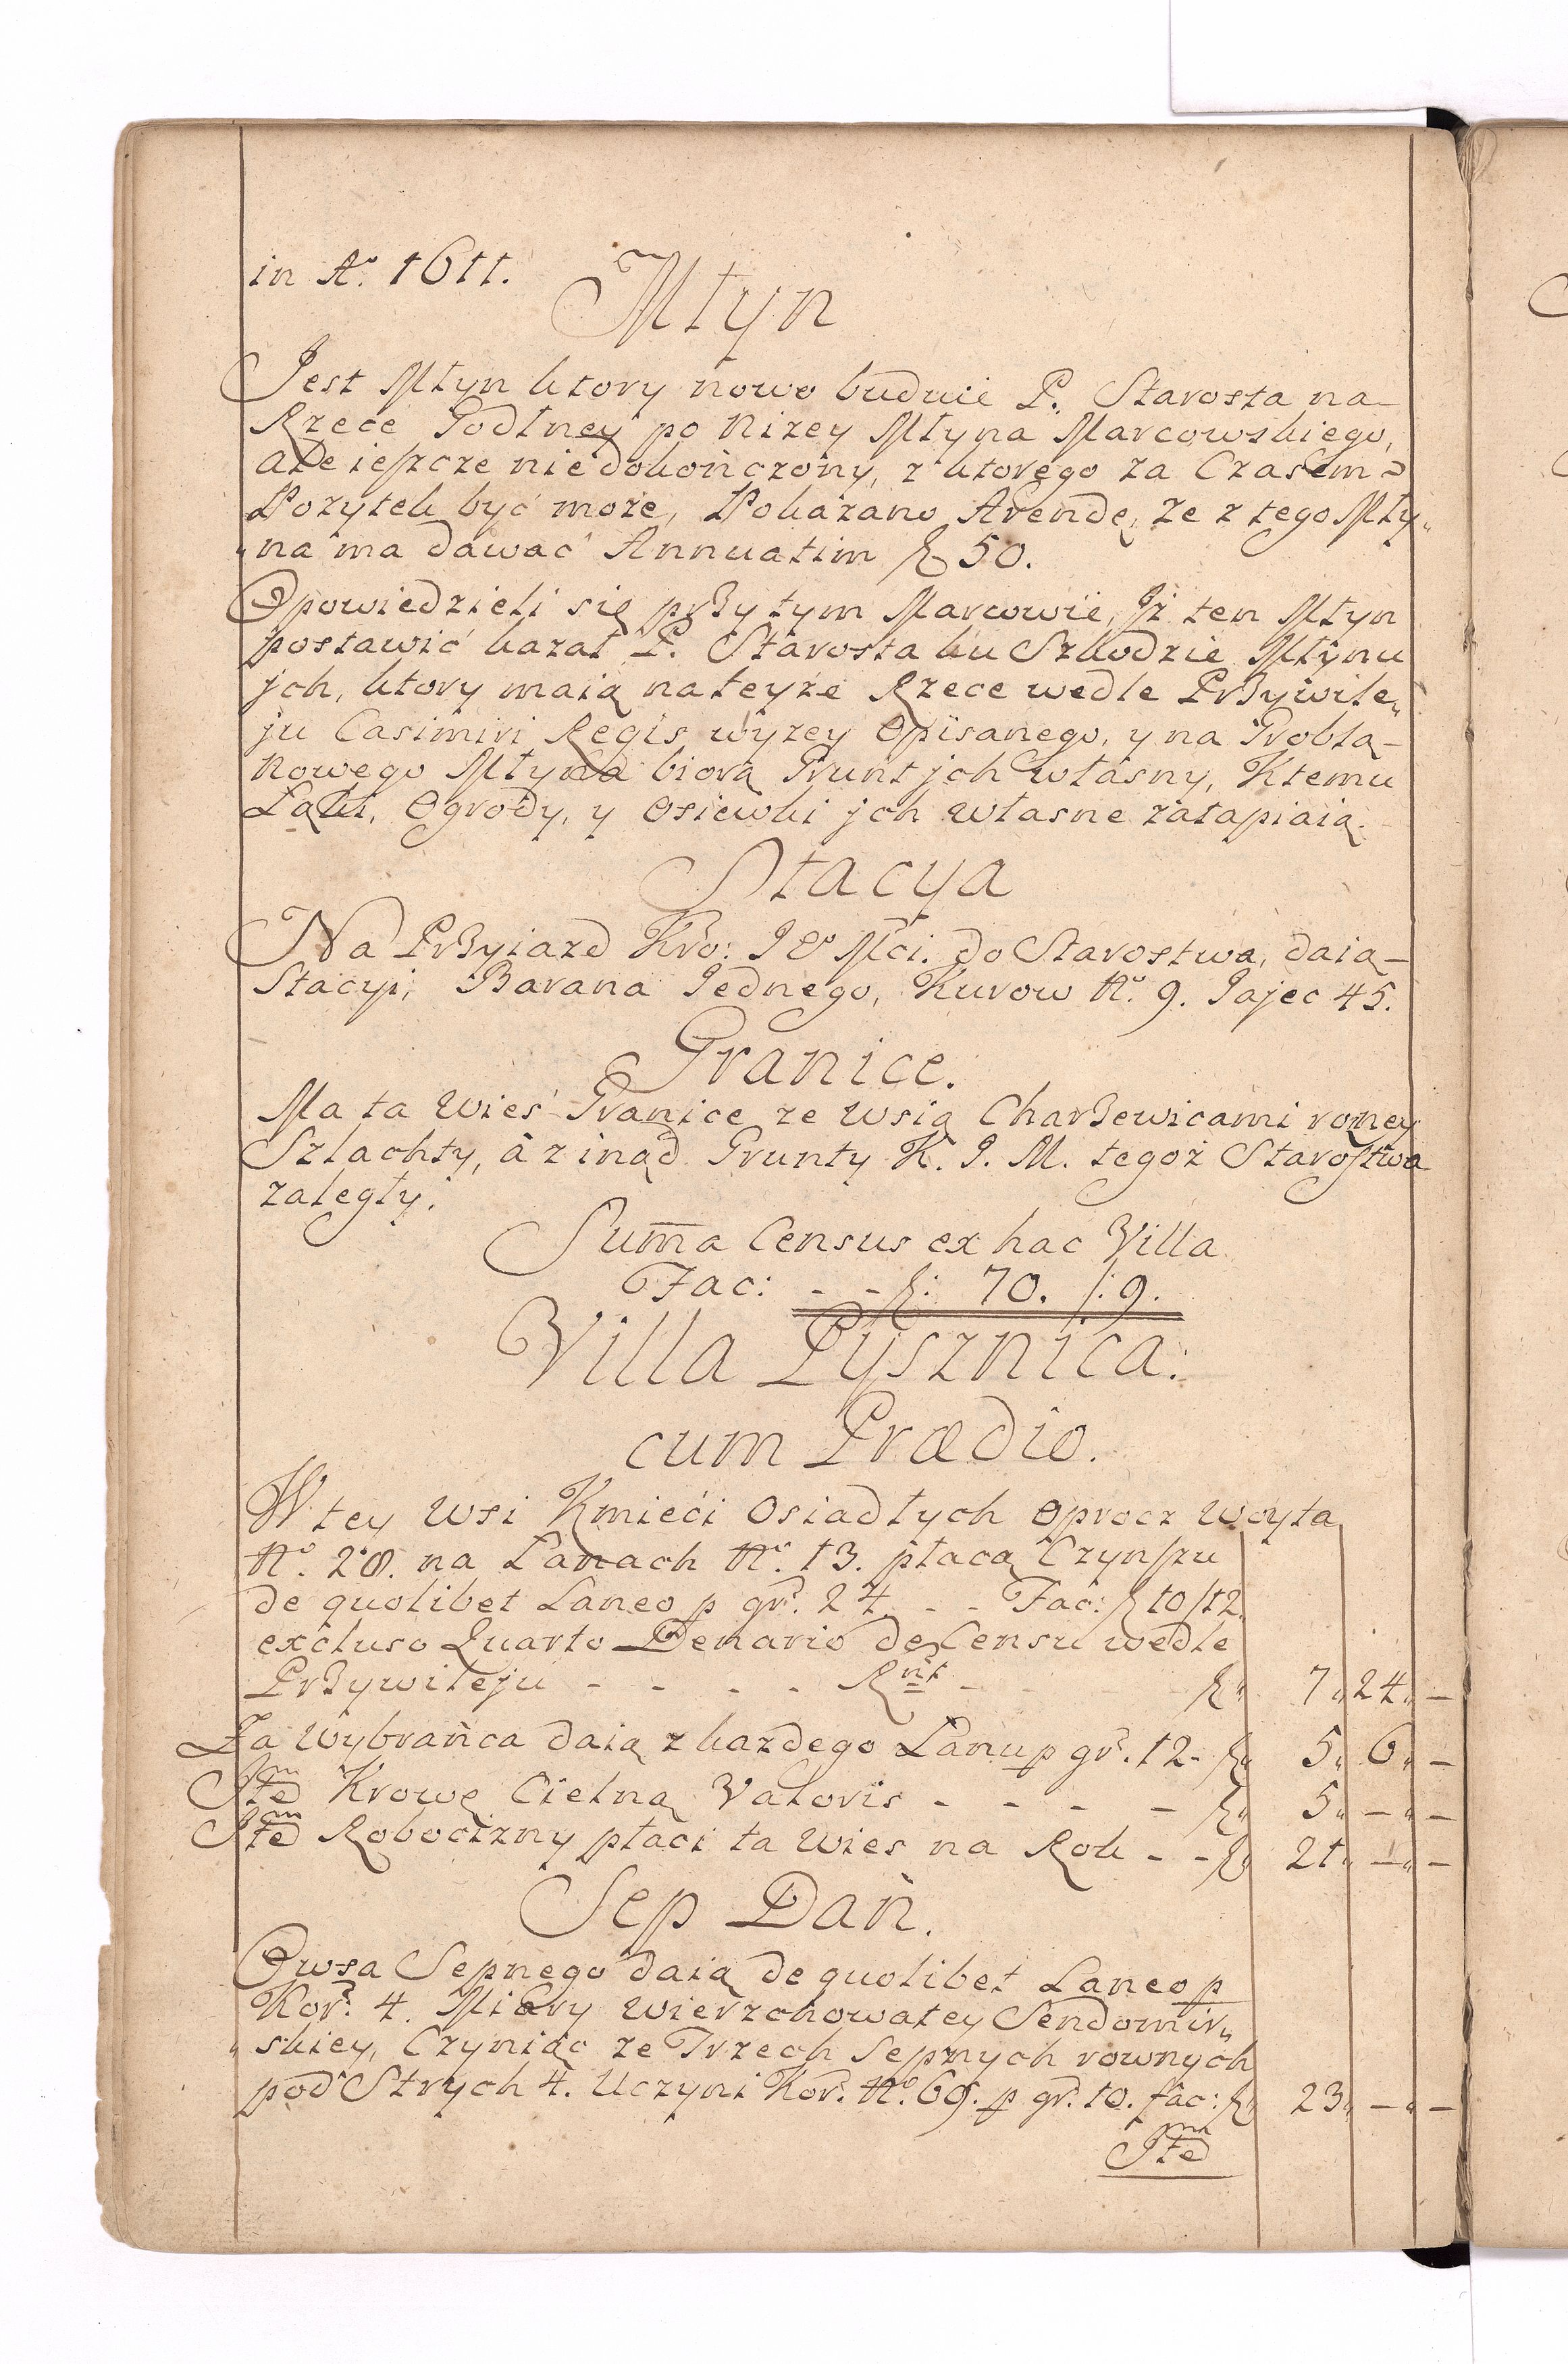 in Aº 1611.
Młyn
Jest Młyn ktory nowo buduie P. Starosta na
Rzece Godłney po Nizey Młyna Marcowskiego,
ale ieszcze niedokończony, z ktorego za Czasem
Pozytek być może, Pokazano Arendę, ze z tego Mły„
„na ma dawać Annuatim f 50.
Opowiedzieli się przy tym Marcowie, Jż ten Młyn
postawić kazał P. Starosta ku Szkodzie Młynu
jch, ktory maią na teyże Rzece wedle Przywile„
ju Casimiri Regis wyzey Opisanego, y na Grobla
Nowego Młyna biorą Grunt jch własny, Ktemu
Łąki, Ogrody, y Osiewki jch własne zatapiaią.
Stacya
Na Przyiazd Kro: J Mci. do Starostwa, daią
Stacyi, Barana Jednego, Kurow Nº 9. Jajec 45.
Granice.
Ma ta Wieś Granice ze Wsią Charzewicami rozney
Szlachty, á z inąd Grunty K. J. M. tegoż Starostwa
zaległy.
Suma Census ex hac Villa
Fac: - - f: 70. /: 9.
Villa Pysznica:
cum Prædio.
W tey Wsi Kmieci Osiadłych Oprocz Woyta
Nº 28. na Łanach Nº 13. płacą Czynszu
de quolibet Laneo p gr. 24. - - Fac: f 10/12.
excluso Quarto Denario de Censu wedle
Przywileju - - - - Rnt - - f„ 7„ 24„ –
Za Wybrańca daią z kazdego Łanu p gr. 12 - f„ 5„ 6„ –
Item Krowę Cielną Valoris - - - - f„ 5„ –„ –
Item Robocizny płaci ta Wies na Rok - - f„ 21„ –„ –
Sep Dań.
Owsa Sepnego daią de quolibet Laneo p
Kor. 4. Miary Wierzchowatey Sendomir„
„skiey, Czyniąc ze Trzech Sepnych rownych
pod Strych 4. Uczyni Kor. Nº 69. p gr. 10. fac: f„ 23„ –„ –
Item